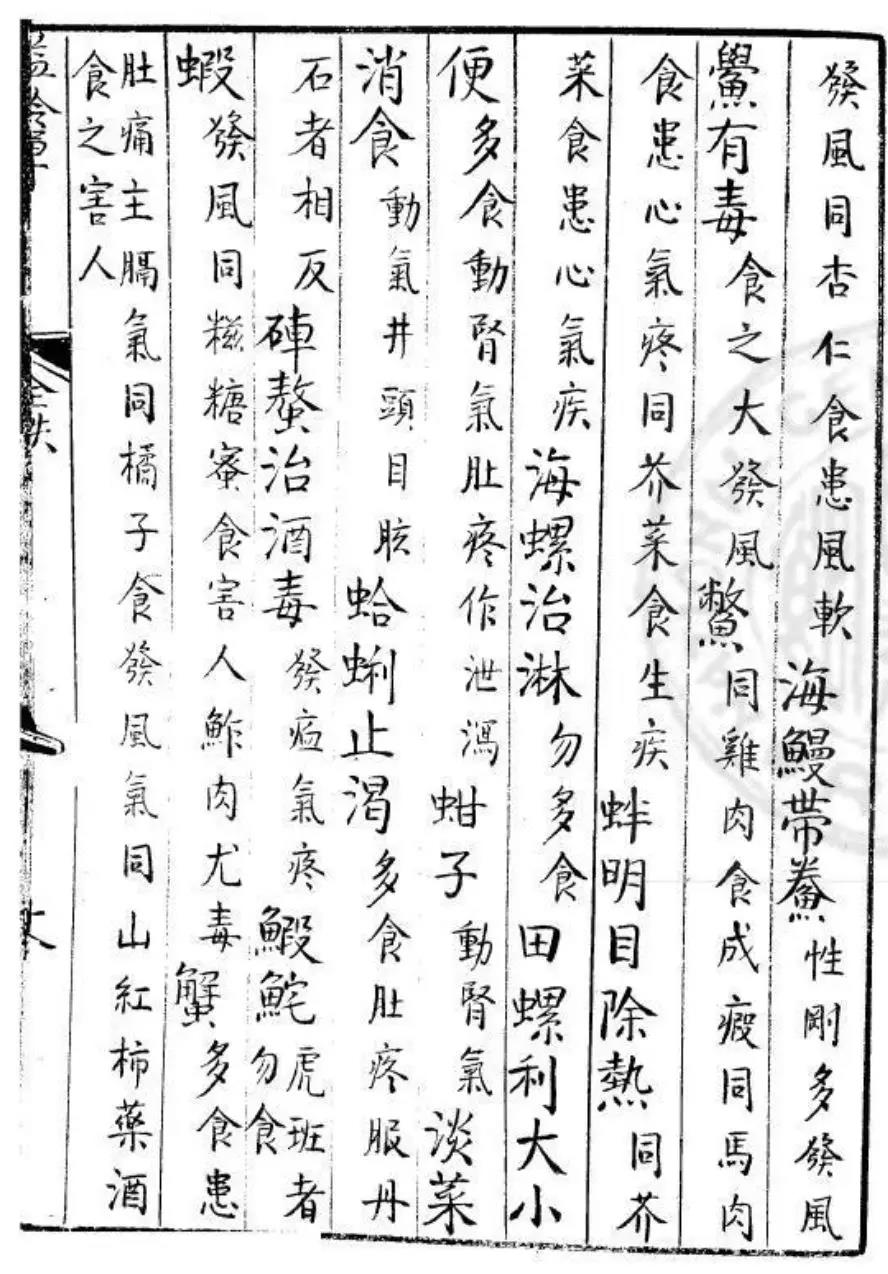 發風同杏仁食患風軟海鰻帶鮝性剛多發風
鱟有毒食之大發風鱉同雞肉食成瘕同馬肉
食患心氣疼同芥菜食生疾蚌明目除熱同芥
菜食患心氣疾海螺治淋勿多食田螺利大小
便多食動腎氣肚疼作泄瀉蚶子動腎氣淡菜
消食動氣井頭目胘蛤蜊止渴多食肚疼服丹
石者相反硨螯治酒毒發瘟氣疼鰕鮀虎班者勿食
蝦發風同糍糖蜜食害人鮓肉尤毒蟹多食患
肚痛主膈氣同橘子食發風氣同山紅柿藥酒
食之害人